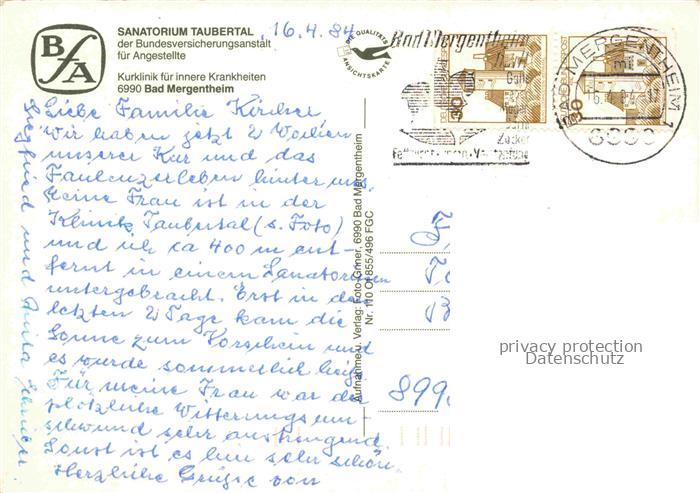 BfA
SANATORIUM TAUBERTAL
der Bundesversicherungsanstalt
für Angestellte
Kurklinik für innere Krankheiten
6990 Bad Mergentheim
16.4.84
DIE QUALITÄTS
ANSICHTSKARTE
Bad Mergentheim
Galle
Zucker
30
30
DEUTSCHE BUNDESPOST
BAD MERGENTHEIM 1
Liebe Familie Kircher
Wir haben jetzt 2 Wochen
unserer Kur und das
Faulenzerleben hinter uns.
Meine Frau ist in der
Klinik Taubertal (s. Foto)
und ich ca 400 m ent-
fernt in einem Sanatorium
untergebracht. Erst in den
letzten 2 Tage kam die
Sonne zum Vorschein und
es wurde sommerlich heiß.
Für meine Frau war der
plötzliche Witterungsum-
schwund sehr anstrengend.
Sonst ist es hier sehr schön.
Herzliche Grüße von
Siegfried und Anita
Aufnahme u. Verlag: Foto-Griner, 6990 Bad Mergentheim
Nr. 110 Of 855/496 FGC
899
privacy protection
Datenschutz